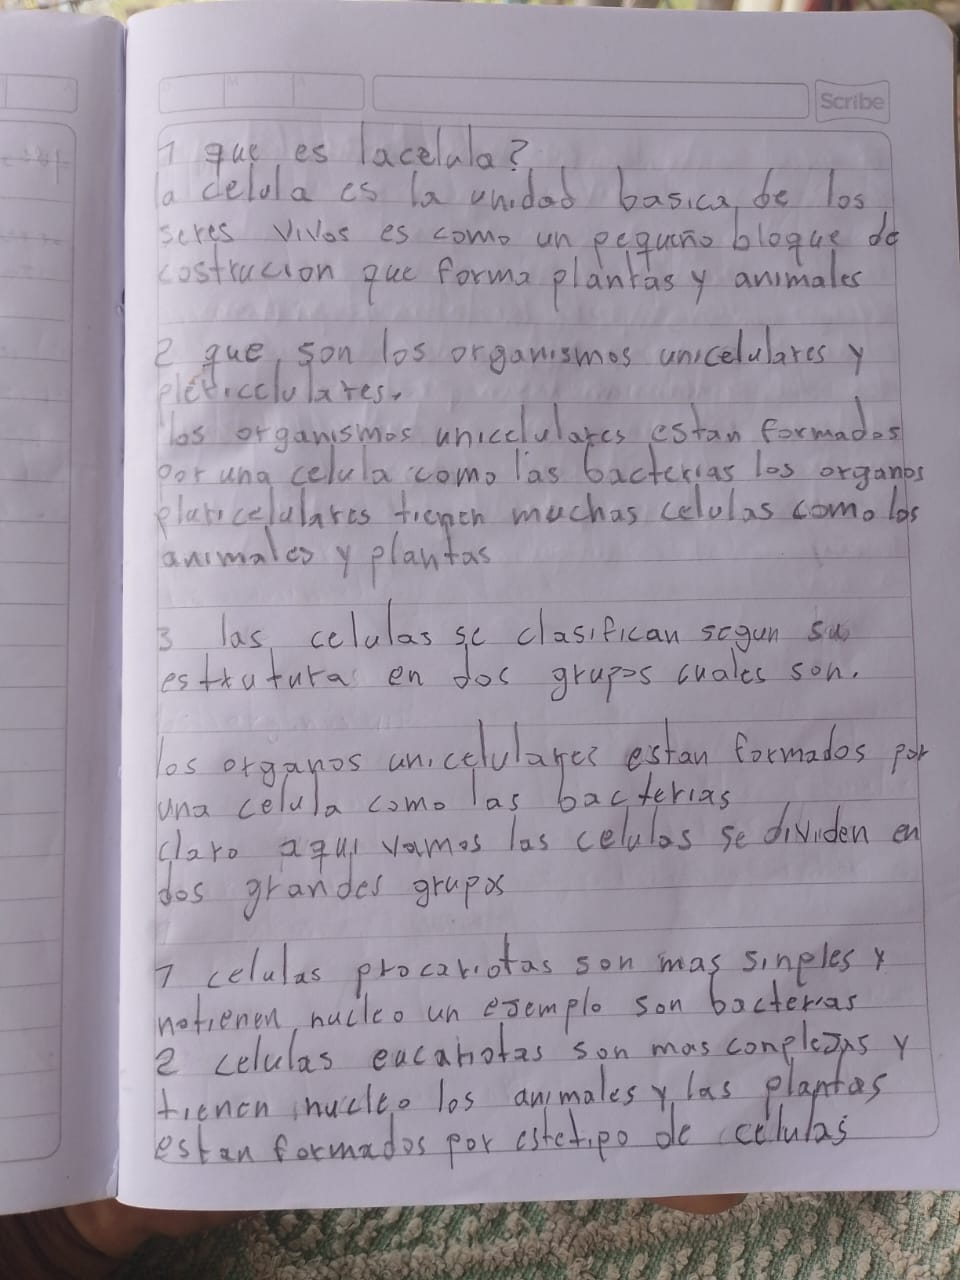 Scribe
1 que es lacelula?
la celula es la unidad basica de los
seres vivos es como un pequeño bloque de
costrucion que forma plantas y animales
2 que son los organismos unicelulares y
los organismos unicelulares estan formados
por una celula como las bacterias los organos
pluricelulares tienen muchas celulas como los
animales y plantas
3 las celulas se clasifican segun su
estrutura en dos grupos cuales son.
los organos unicelulares estan formados por
una celula como las bacterias
claro aqui vamos las celulas se dividen en
dos grandes grupos
1 celulas procariotas son mas sinples y
notienen nucleo un ejemplo son bacterias
2 celulas eucariotas son mas conplejas y
tienen nucleo los animales y las plantas
estan formados por estetipo de celulas